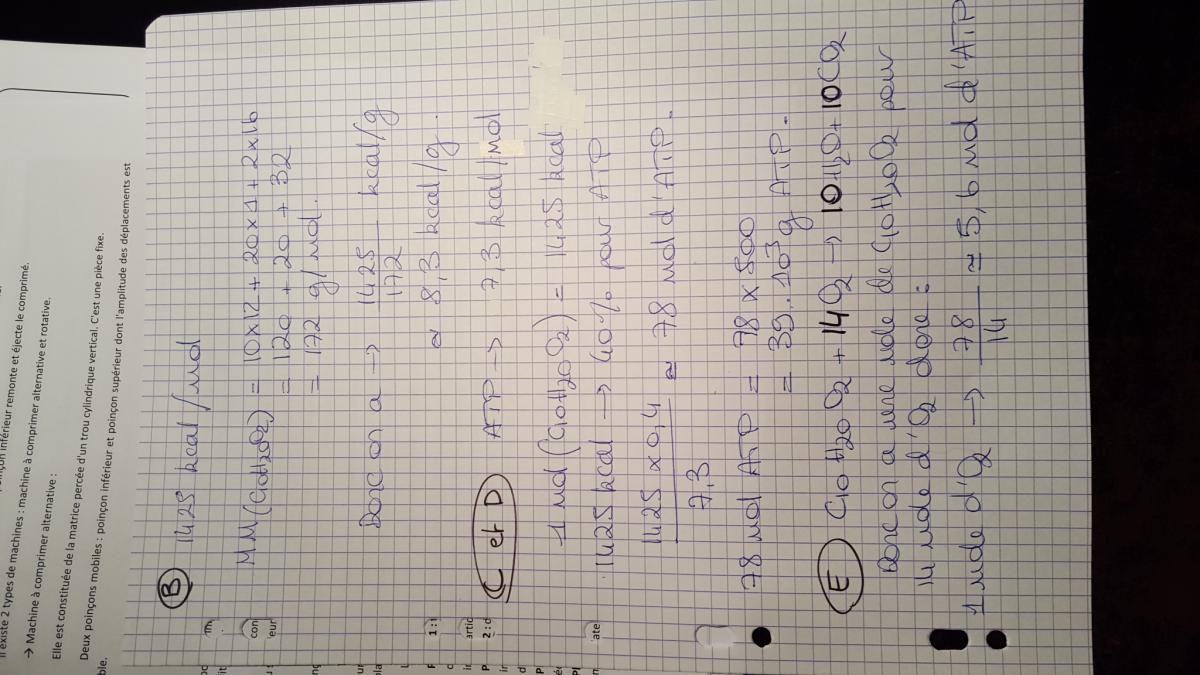 Il existe 2 types de machines : machine à comprimer alternative et rotative.
→ Machine à comprimer alternative :
Elle est constituée de la matrice percée d'un trou cylindrique vertical. C'est une pièce fixe.
Deux poinçons mobiles : poinçon inférieur et poinçon supérieur dont l'amplitude des déplacements est
inférieur remonte et éjecte le comprimé.
ble.
B 1425 kcal/mol
MM(C10H20O2) = 10x12 + 20x1 + 2x16
= 120 + 20 + 32
= 172 g/mol.
Donc on a → 1425/172 kcal/g
≈ 8,3 kcal/g.
C et D ATP → 7,3 kcal/mol
1 mol (C10H20O2) = 1425 kcal
1425 kcal → 40% pour ATP
1425 x 0,4 / 7,3 ≈ 78 mol d'ATP.
78 mol ATP = 78 x 500
= 39.10³ g ATP.
E C10H20O2 + 14O2 → 10H2O + 10CO2
Donc on a une mole de C10H20O2 pour
14 mole d'O2 donc :
1 mole d'O2 → 78/14 ≈ 5,6 mol d'ATP